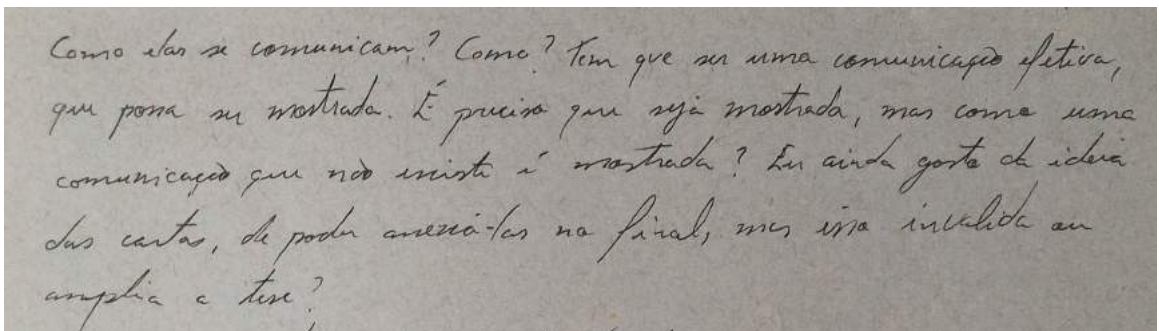 Como elas se comunicam? Como? Tem que ser uma comunicação efetiva,
que possa ser mostrada. É preciso que seja mostrada, mas como uma
comunicação que não existe é mostrada? Eu ainda gosto da ideia
das cartas, de poder anexá-las no final, mas isso invalida ou
amplia a tese?